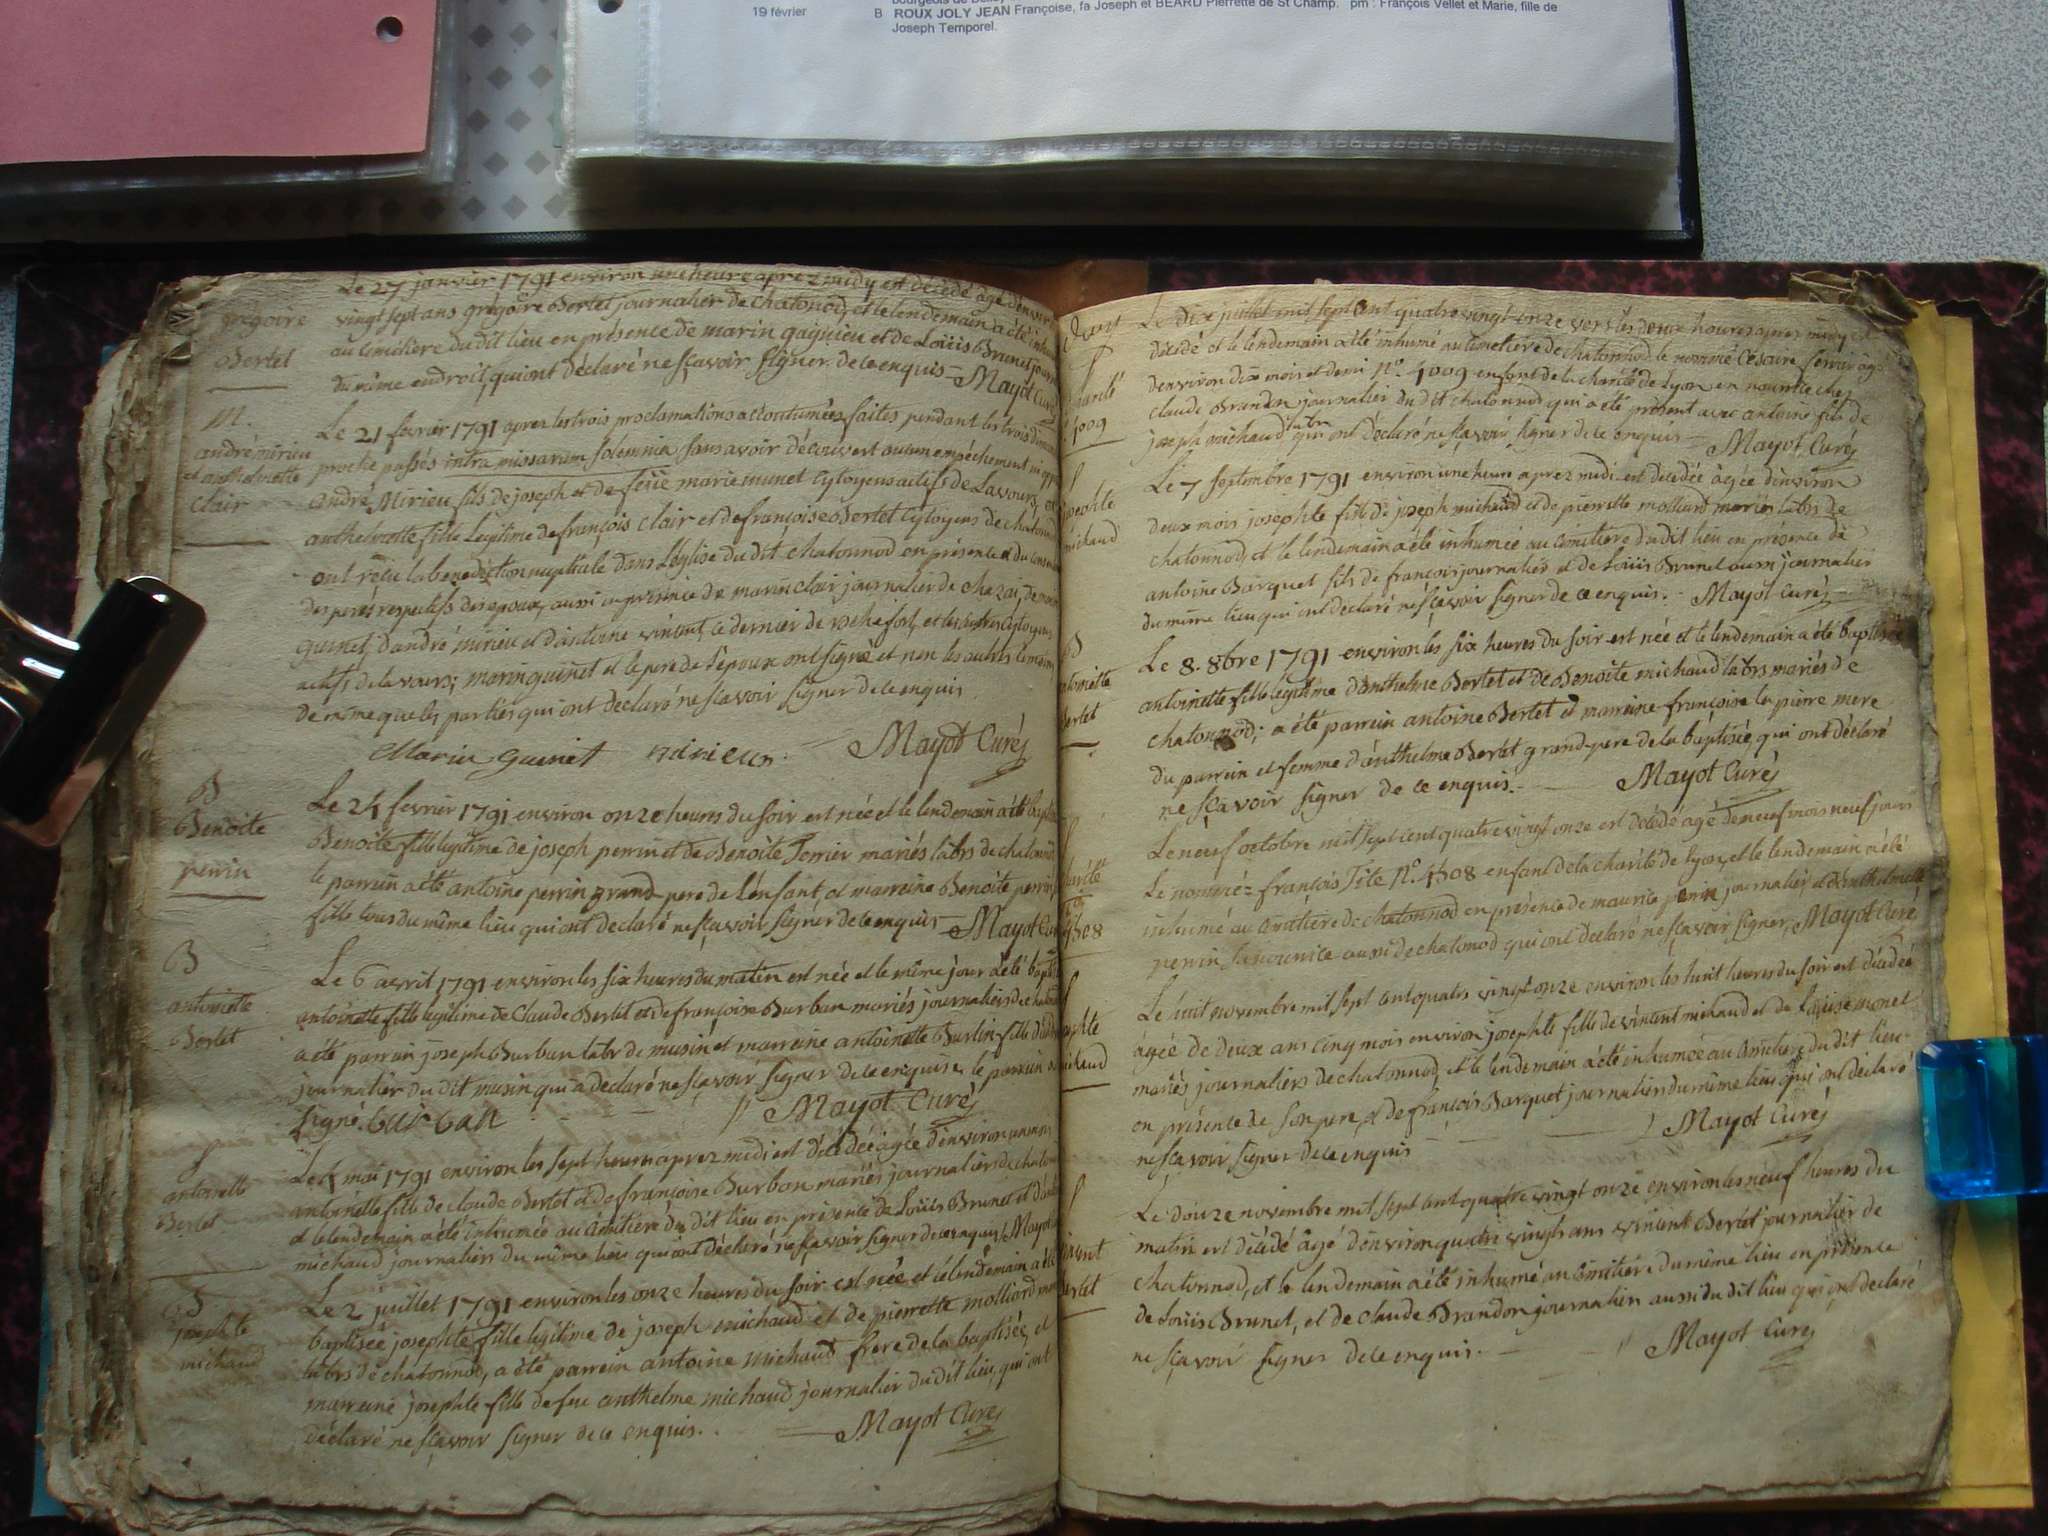 19 février B ROUX JOLY JEAN Françoise, fa Joseph et BEARD Pierrette de St Champ. pm : François Vellet et Marie, fille de
Joseph Temporel.
Le 27 janvier 1791 environ une heure aprez midy est décédé âgé d'environ
gregoire
Bertet
vingt sept ans grégoire Bertet journalier de chatonnod, et le lendemain a été inhumé
au cimétière du dit lieu en présence de marin gaquieu et de Loüis Brunet
du même endroit, qui ont déclaré ne sçavoir signer de ce enquis Mayot Curé
M.
andré mirieu
et anthelmette
clair
Le 21 fevrier 1791 aprez les trois proclamations accoutumées faites pendant les trois
proche passés intra missarum solemnia sans avoir découvert aucun empêchement
andré Mirieu fils de joseph et de feüe marie munet Cytoyens actifs de Lavours, et
anthelmette fille légitime de françois clair et de françoise Bertet Cytoyens de
ont reçu la benediction nuptiale dans L'église du dit chatonnod en présence et du
des peres respectifs des epoux, aussi en présence de marin clair journalier de chazai, de
guinet, d'andré mirieu et d'antoine vincent, ce dernier de rochefort, et les autres Cytoyens
actifs de lavours; marin guinet et le pere de l'epoux ont signé et non les autres temoins
de même que les parties qui ont déclaré ne sçavoir signer de ce enquis
Marin guinet mirieux Mayot Curé
B
Benoite
perrin
Le 24 fevrier 1791 environ onze heures du soir est née et le lendemain a été
Benoite fille legitime de joseph perrin et de Benoite Terrier mariés labrs de
le parrain a été antoine perrin grand pere de L'enfant, et marreine Benoite perrin
fille tous du même lieu qui ont déclaré ne sçavoir signer de ce enquis Mayot
B
antoinette
Bertet
Le 6 avril 1791 environ les six heures du matin est née et le même jour a été
antoinette fille legitime de Claude Bertet et de françoise Burban mariés journaliers de
a été parrain joseph Burban labr de musin et marreine antoinette Burlin fille
journalier du dit musin qui a déclaré ne sçavoir signer de ce enquise, le parrain
signé burban Mayot Curé
antoinette
Bertet
Le 4 mai 1791 environ les sept heures aprez midi est décédée âgée d'environ
antoinette fille de claude Bertet et de françoise Burban mariés journaliers de
et le lendemain a été inhumée au cimitière du dit lieu en présence de Loüis Brunet et
michaud journaliers du même lieu qui ont déclaré ne sçavoir signer de ce enquis Mayot
B
josephte
michaud
Le 2 juillet 1791 environ les onze heures du soir est née et le lendemain a été
baptisée josephte fille legitime de joseph michaud et de pierrette mollard
labrs de chatonnod, a été parrein antoine michaud frere de la baptisée, et
marreine josephte fille de feu anthelme michaud journalier du dit lieu, qui ont
déclaré ne sçavoir signer de ce enquis. Mayot Curé
charité
4009
Le dix juillet mil sept cent quatre vingt onze vers les deux heures aprez midy est
décédé et le lendemain a été inhumé au cimetière de chatonnod le nommé Césaire
d'environ dix mois et demi n°. 4009 enfant de la charité de Lyon en nourrice chez
claude Brandon journalier du dit chatonnod qui a été présent avec antoine fils de
joseph michaud labr qui ont déclaré ne sçavoir signer de ce enquis Mayot Curé
josephte
michaud
Le 7 septembre 1791 environ une heure aprez midi est décédée âgée d'environ
deux mois josephte fille de joseph michaud et de pierrette mollard mariés labrs de
chatonnod, et le lendemain a été inhumée au cimitière du dit lieu en présence de
antoine Barquet fils de françois journalier et de Loüis Brunet aussi journalier
du même lieu qui ont déclaré ne sçavoir signer de ce enquis. Mayot Curé
B
antoinette
Bertet
Le 8. 8bre 1791 environ les six heures du soir est née et le lendemain a été baptisée
antoinette fille legitime d'anthelme Bertet et de Benoite michaud labrs mariés de
chatonnod; a été parrein antoine Bertet et marreine françoise la pierre mere
du parrein et femme d'anthelme Bertet grand-pere de la baptisée, qui ont déclaré
ne sçavoir signer de ce enquis. Mayot Curé
charité
4508
Le neuf octobre mil sept cent quatre vingt onze est décédé âgé de neuf mois neuf jours
Le nommé françois Tite n°. 4508 enfant de la charité de Lyon, et le lendemain a été
inhumé au cimitière de chatonnod en présence de maurice perrin journalier, et d'anthelme
perrin aussi de chatonnod qui ont déclaré ne sçavoir signer, Mayot Curé
josephte
michaud
Le huit novembre mil sept cent quatre vingt onze environ les huit heures du soir est décédée
âgée de deux ans cinq mois environ josephte fille de vincent michaud et de Loüise monet
mariés journaliers de chatonnod, et le lendemain a été inhumée au cimitière du dit lieu
en présence de son pere, et de françois Barquet journalier du même lieu, qui ont déclaré
ne sçavoir signer de ce enquis Mayot Curé
vincent
Bertet
Le douze novembre mil sept cent quatre vingt onze environ les neuf heures du
matin est décédé âgé d'environ quatre vingts ans vincent Bertet journalier de
chatonnod, et le lendemain a été inhumé au cimitière du même lieu en présence
de Loüis Brunet, et de claude Brandon journaliers aussi du dit lieu qui ont déclaré
ne sçavoir signer de ce enquis. Mayot Curé